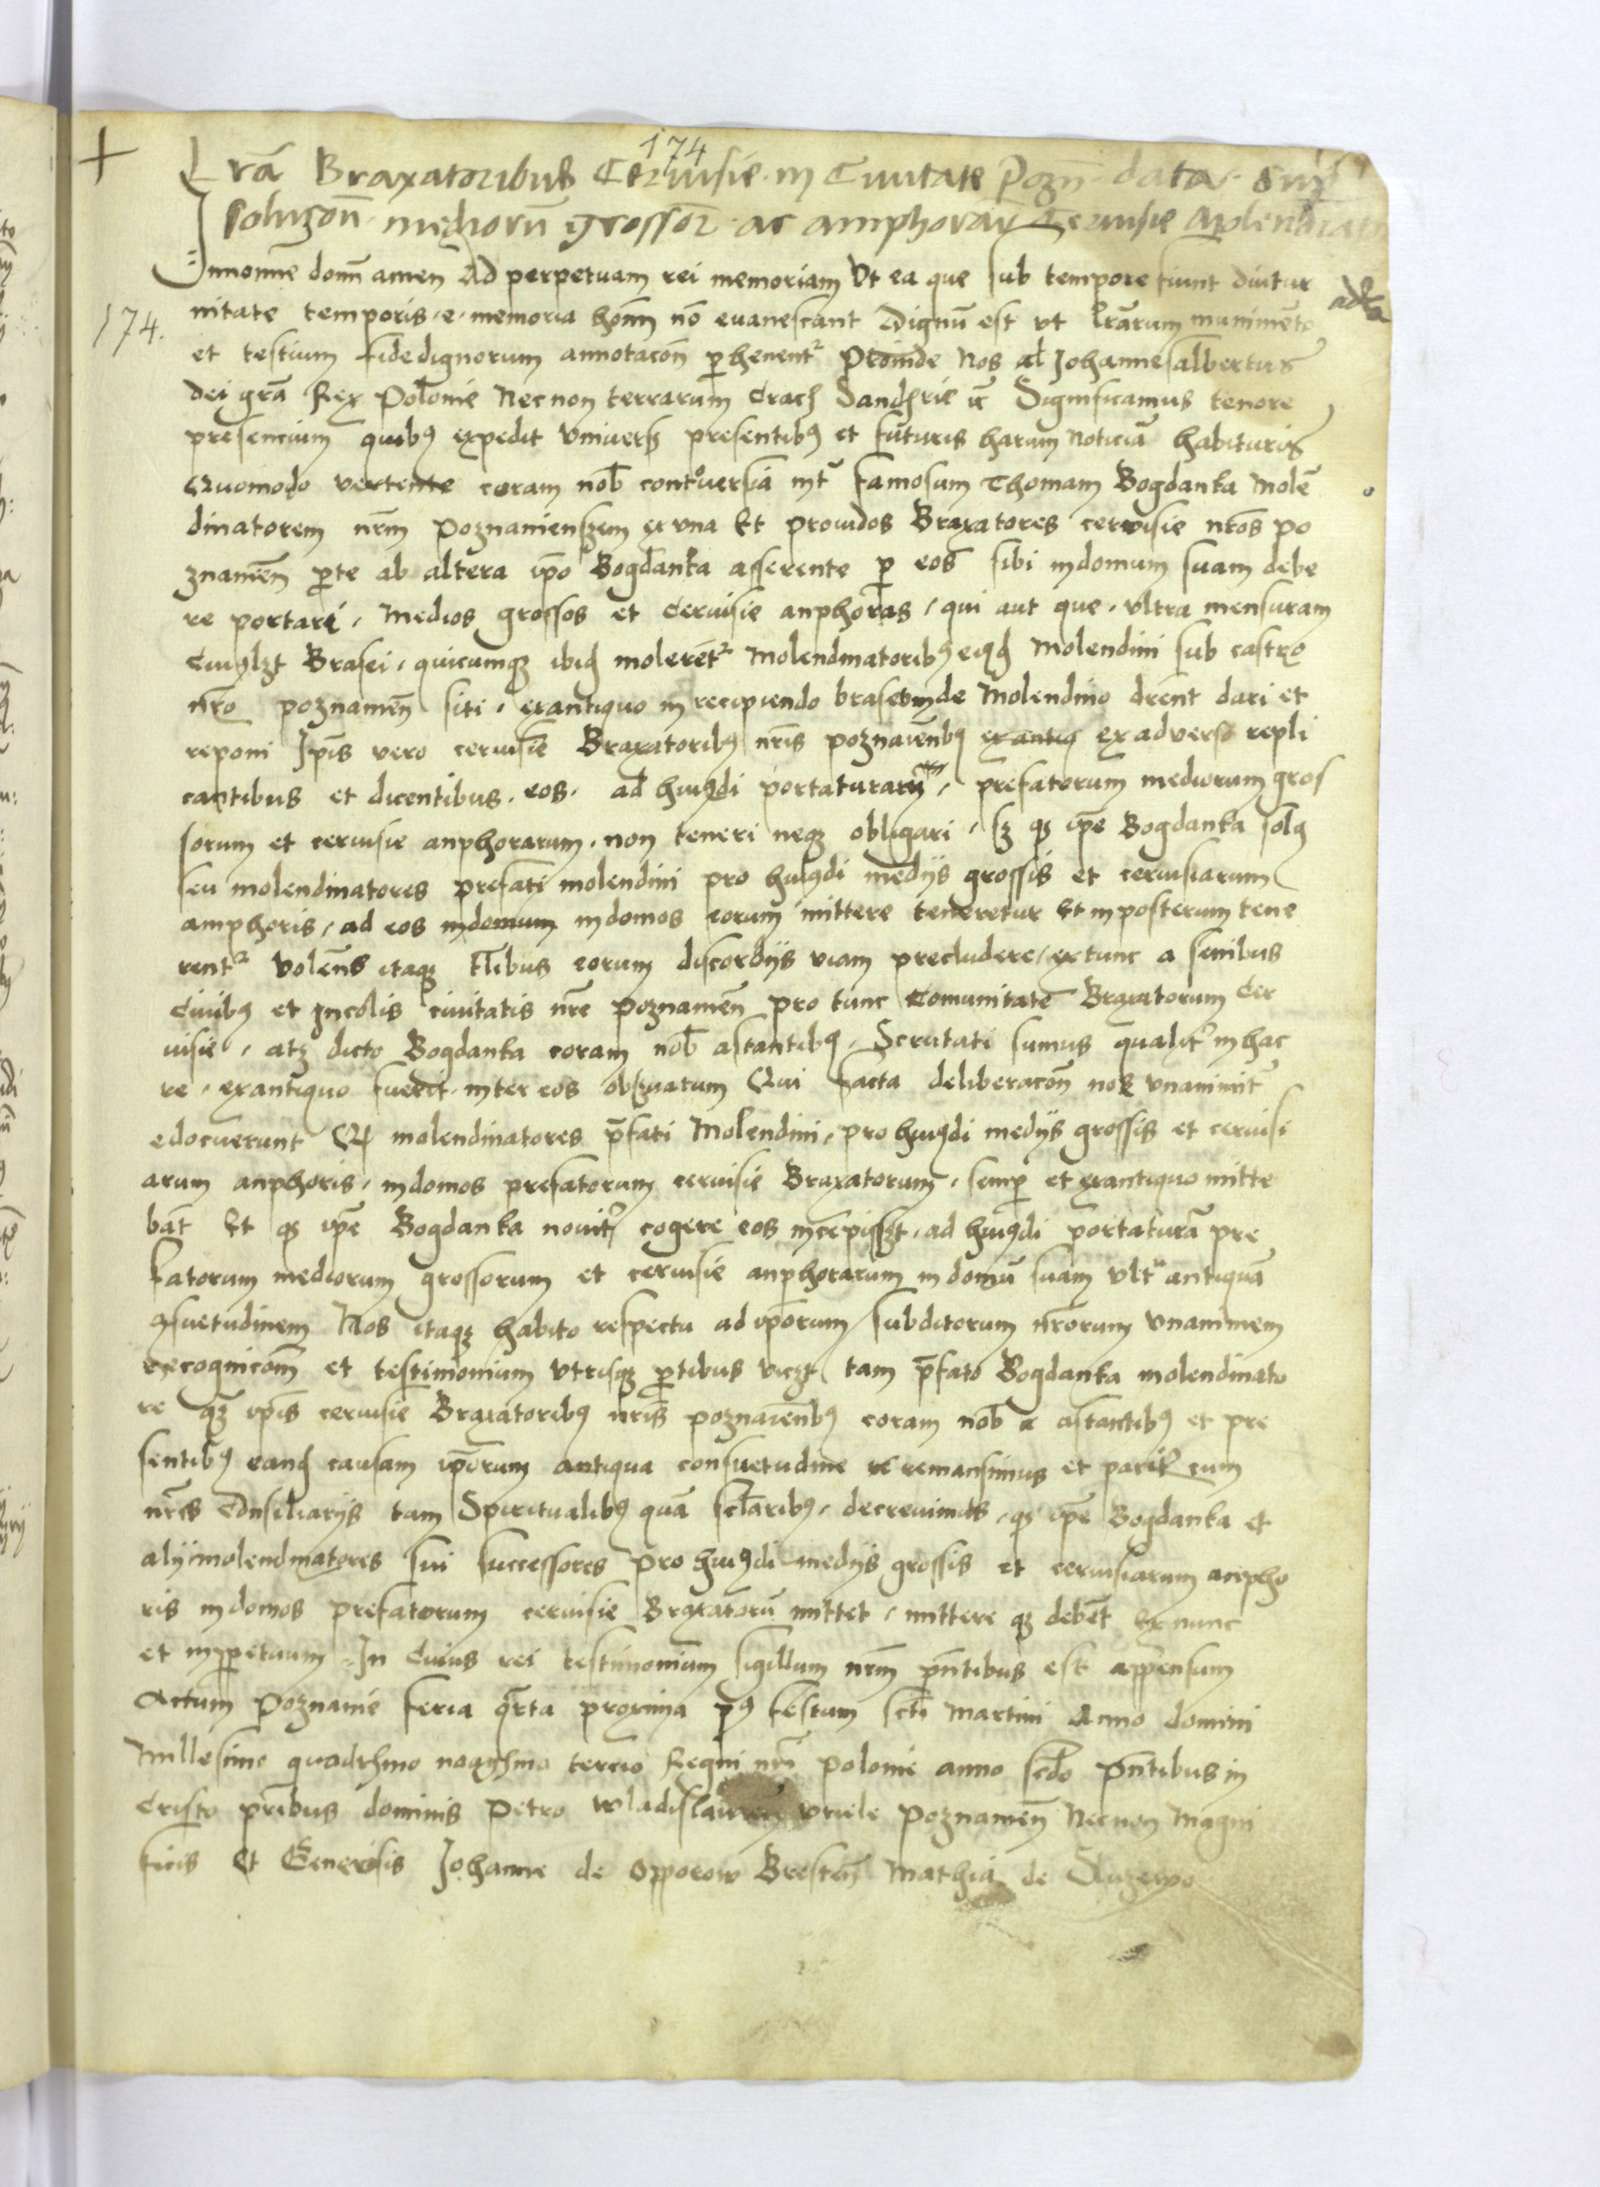 174
Lrā Braxatoribus Cervisie in Civitate Pozn data sup
soluczoñ medioru grossor ac amphorar Cervisie
Innomine domi amen Ad perpetuam rei memoriam Ut ea que sub tempore fiunt diutur
174. nitate temporis e memoria hoim nō evanescant Dignū est ut lrarum munimento
et testium fidedignorum annotacoñ perhenentr Proinde Nos Johannes albertus
dei grā Rex Polonie Necnon terrarum Crac Sandomrie Significamus tenore
presencium quibus expedit universs presentibus et futuris harum noticiā habituris
Quomodo vertente coram nob controversia intr famosum Thomam Bogdanka Mole
dinatorem nrm Poznanienszem ex una Et providos Braxatores cervisie nros po
znanieñ pte ab altera ipo Bogdanka asserente p eos sibi indomum suam debe
re portari, Medios grossos et Cervisie anphoras, qui aut que, ultra mensuram
Cuiuslzt Brasei, quicumque ibid molerētr Molendinatoribus eiusd Molendini sub castro
nro poznanieñ siti, exantiquo in recipiendo brasea inde Molendino drent dari et
reponi Ipis vero cervisie Braxatoribus nris poznaienbus exantiq exadverso repli
cantibus et dicentibus, eos, ad huiusdi portaturam, prefatorum mediorum gros
sorum et cervisie anphorarum, non teneri neque obligari, sz qs ipe Bogdanka solus
seu molendinatores prefati molendini pro huiusdi medijs grossis et cervisiarum
amphoris, ad eos indomum indomos eorum mittere teneretur Et inposterum tene
rentr Volens itaque tlibus eorum discordijs viam precludere, ex tunc a senibus
Civibus et Incolis civitatis nre Poznanieñ pro tunc Comunitate Braxatorum Cer
visie, atque dicto Bogdanka coram nob astantibus, Scrutati sumus qualitr inhac
re, exantiquo fuerit inter eos observatum Qui facta deliberacoñ nos unanimitr
edocuerunt Qs molendinatores pfati Molendini, pro huiusdi medijs grossis et cervisi
arum anphoris, indomos prefatorum cervisie Braxatorum, semp et exantiquo mitte
bāt Et qs ipe Bogdanka novitr cogere eos incepisszt, ad huiusdi portaturā pre
fatorum mediorum grossorum et cervisie anphorarum in domū suam ultra antiquā
consuetudinem Nos itaque habito respectu ad iporum subditorum nrorum unanimem
recognicoñ et testimonium utrisque ptibus viczt tam pfato Bogdanka molendinato
re quam ipis cervisie Braxatoribus nris poznaienbus coram nob astantibus et pre
sentibus eand causam iporum antiqua consuetudine remansimus et paritr cum
nris Consiliarijs tam Spiritualibus quā sclaribus, decrevimus, qs ipe Bogdanka et
alijmolendinatores sui successores pro huiusdi medijs grossis et cervisiarum anpho
ris indomos prefatorum cervisie Braxatorū mittet, mittere que debēt Ex nunc
et inppetuum In Cuius rei testimonium sigillum nrm pntibus est appensum
Actum Poznanie feria qrta proxima ps festum scti Martini Anno domini
Millesimo quadrsmo nogsmo tercio Regni nri polonie anno scdo pntibus in
Cristo pribus dominis Petro Wladislavien Uriele Poznanieñ Necnon Magni
ficis Et Generosis Johanne de Opporow Bresteñ Mathia de Sluzewo